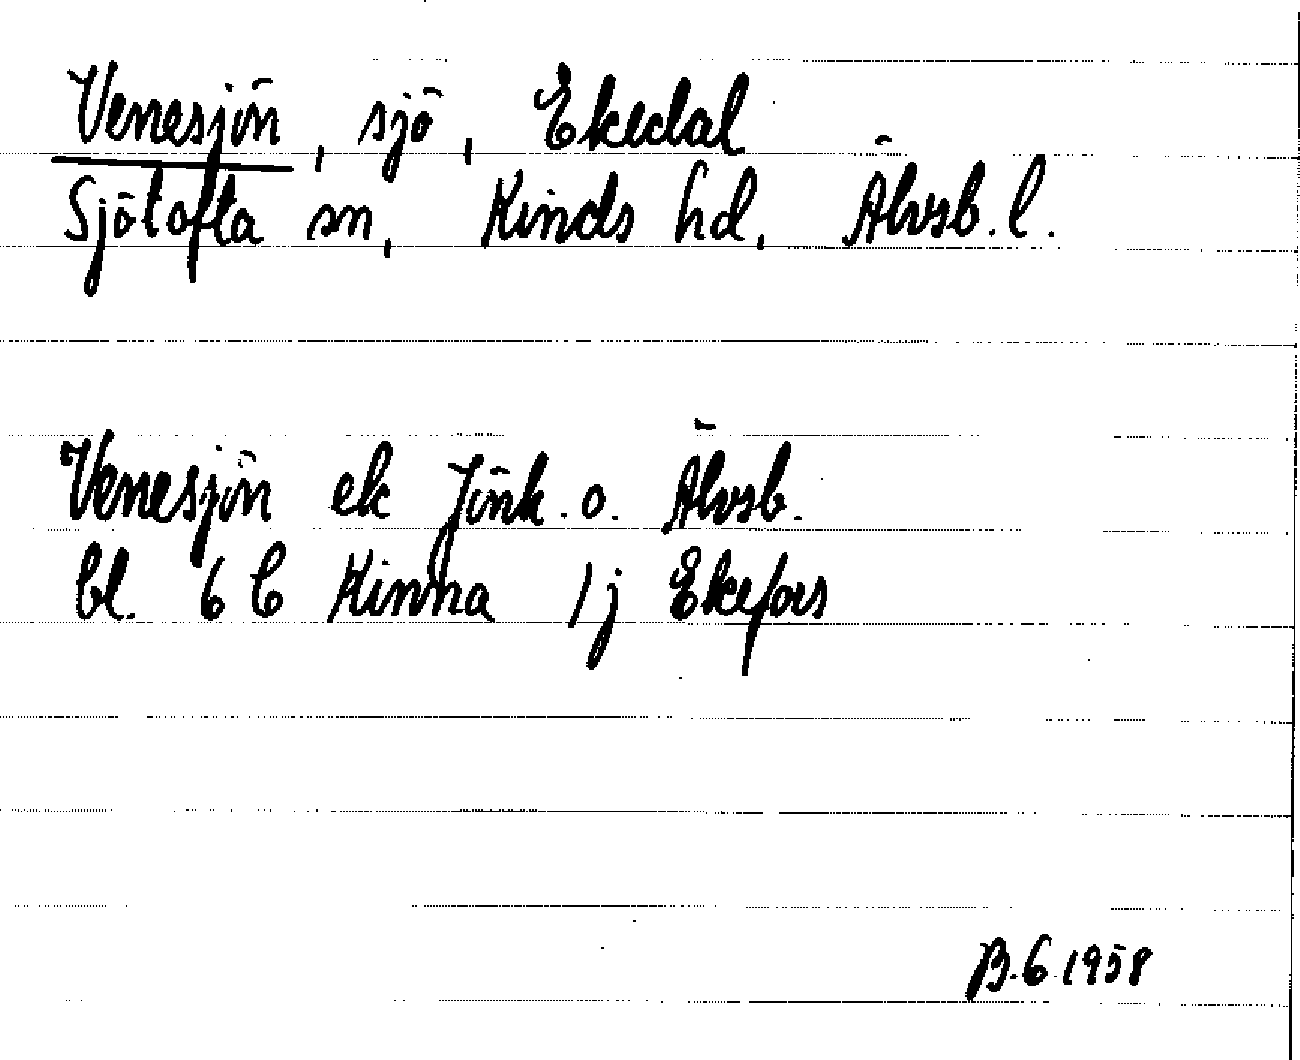 Venesjön, sjö, Ekedal
Sjötofta sn, Kinds hd, Älvsb. l.
Venesjön ek Jönk. o. Älvsb.
bl. 6 C Kinna 1j Ekefors
B.G 1958